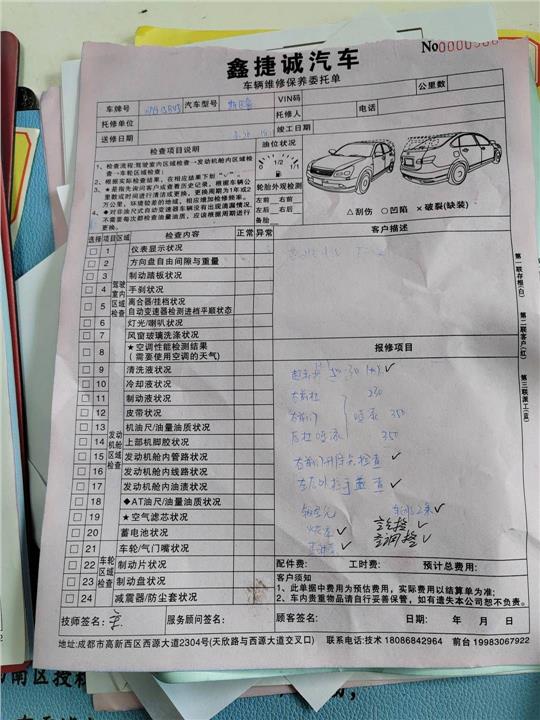 No0000
鑫捷诚汽车
车辆维修保养委托单
车牌号 汽车型号 VIN码 公里数
托修单位 托修人 电话
送修日期 竣工日期
检查项目说明
1、检查流程:驾驶室内区域检查→发动机舱内区域检查→车轮区域检查;
2、根据实际检查结果,在相应结果下划“√”;
3、★是指先询问客户或查看历史记录。根据车辆公里数或时间进行清洁或更换,更换周期为1年或2万公里,环境较差的地域,相应增加检修频率。
4、◆对非油尺式自动变速器车辆没有出现滴漏情况,不需要每次都检查油量油质,应该根据周期进行更换。
油位状况
0 1/2 1/1
轮胎外观检测
左前 右前
左后 右后
备胎
△刮伤 ○凹陷 ×破裂(缺装)
选择 项目 区域 检查内容 正常 异常
驾驶室内区域检查
1 仪表显示状况
2 方向盘自由间隙与重量
3 制动踏板状况
4 手刹状况
5 离合器/挂档状况
自动变速器检测进档平顺状态
6 灯光/喇叭状况
7 风窗玻璃洗涤状况
8 ★空调性能检测结果
(需要使用空调的天气)
发动机舱区域检查
9 清洗液状况
10 冷却液状况
11 制动液状况
12 皮带状况
13 机油尺/油量油质状况
14 上部机脚胶状况
15 发动机舱内管路状况
16 发动机舱内线路状况
17 发动机舱内油渍状况
18 ◆AT油尺/油量油质状况
19 ★空气滤芯状况
20 蓄电池状况
车轮区域检查
21 车轮/气门嘴状况
22 制动片状况
23 制动盘状况
24 减震器/防尘套状况
客户描述
报修项目
230
喷漆 350
喷漆 350
检查 ✓
检查 ✓
配件费: 工时费: 预计总费用:
客户须知
1、此单据中费用为预估费用,实际费用以结算单为准;
2、车内贵重物品请自行妥善保管,如有遗失本公司恕不负责。
技师签名: 服务顾问签名: 顾客签名: 日期: 年 月 日
地址:成都市高新西区西源大道2304号(天欣路与西源大道交叉口) 联系电话:技术 18086842964 前台 19983067922
第一联存根(白)
第二联客户(红)
第三联派工(蓝)